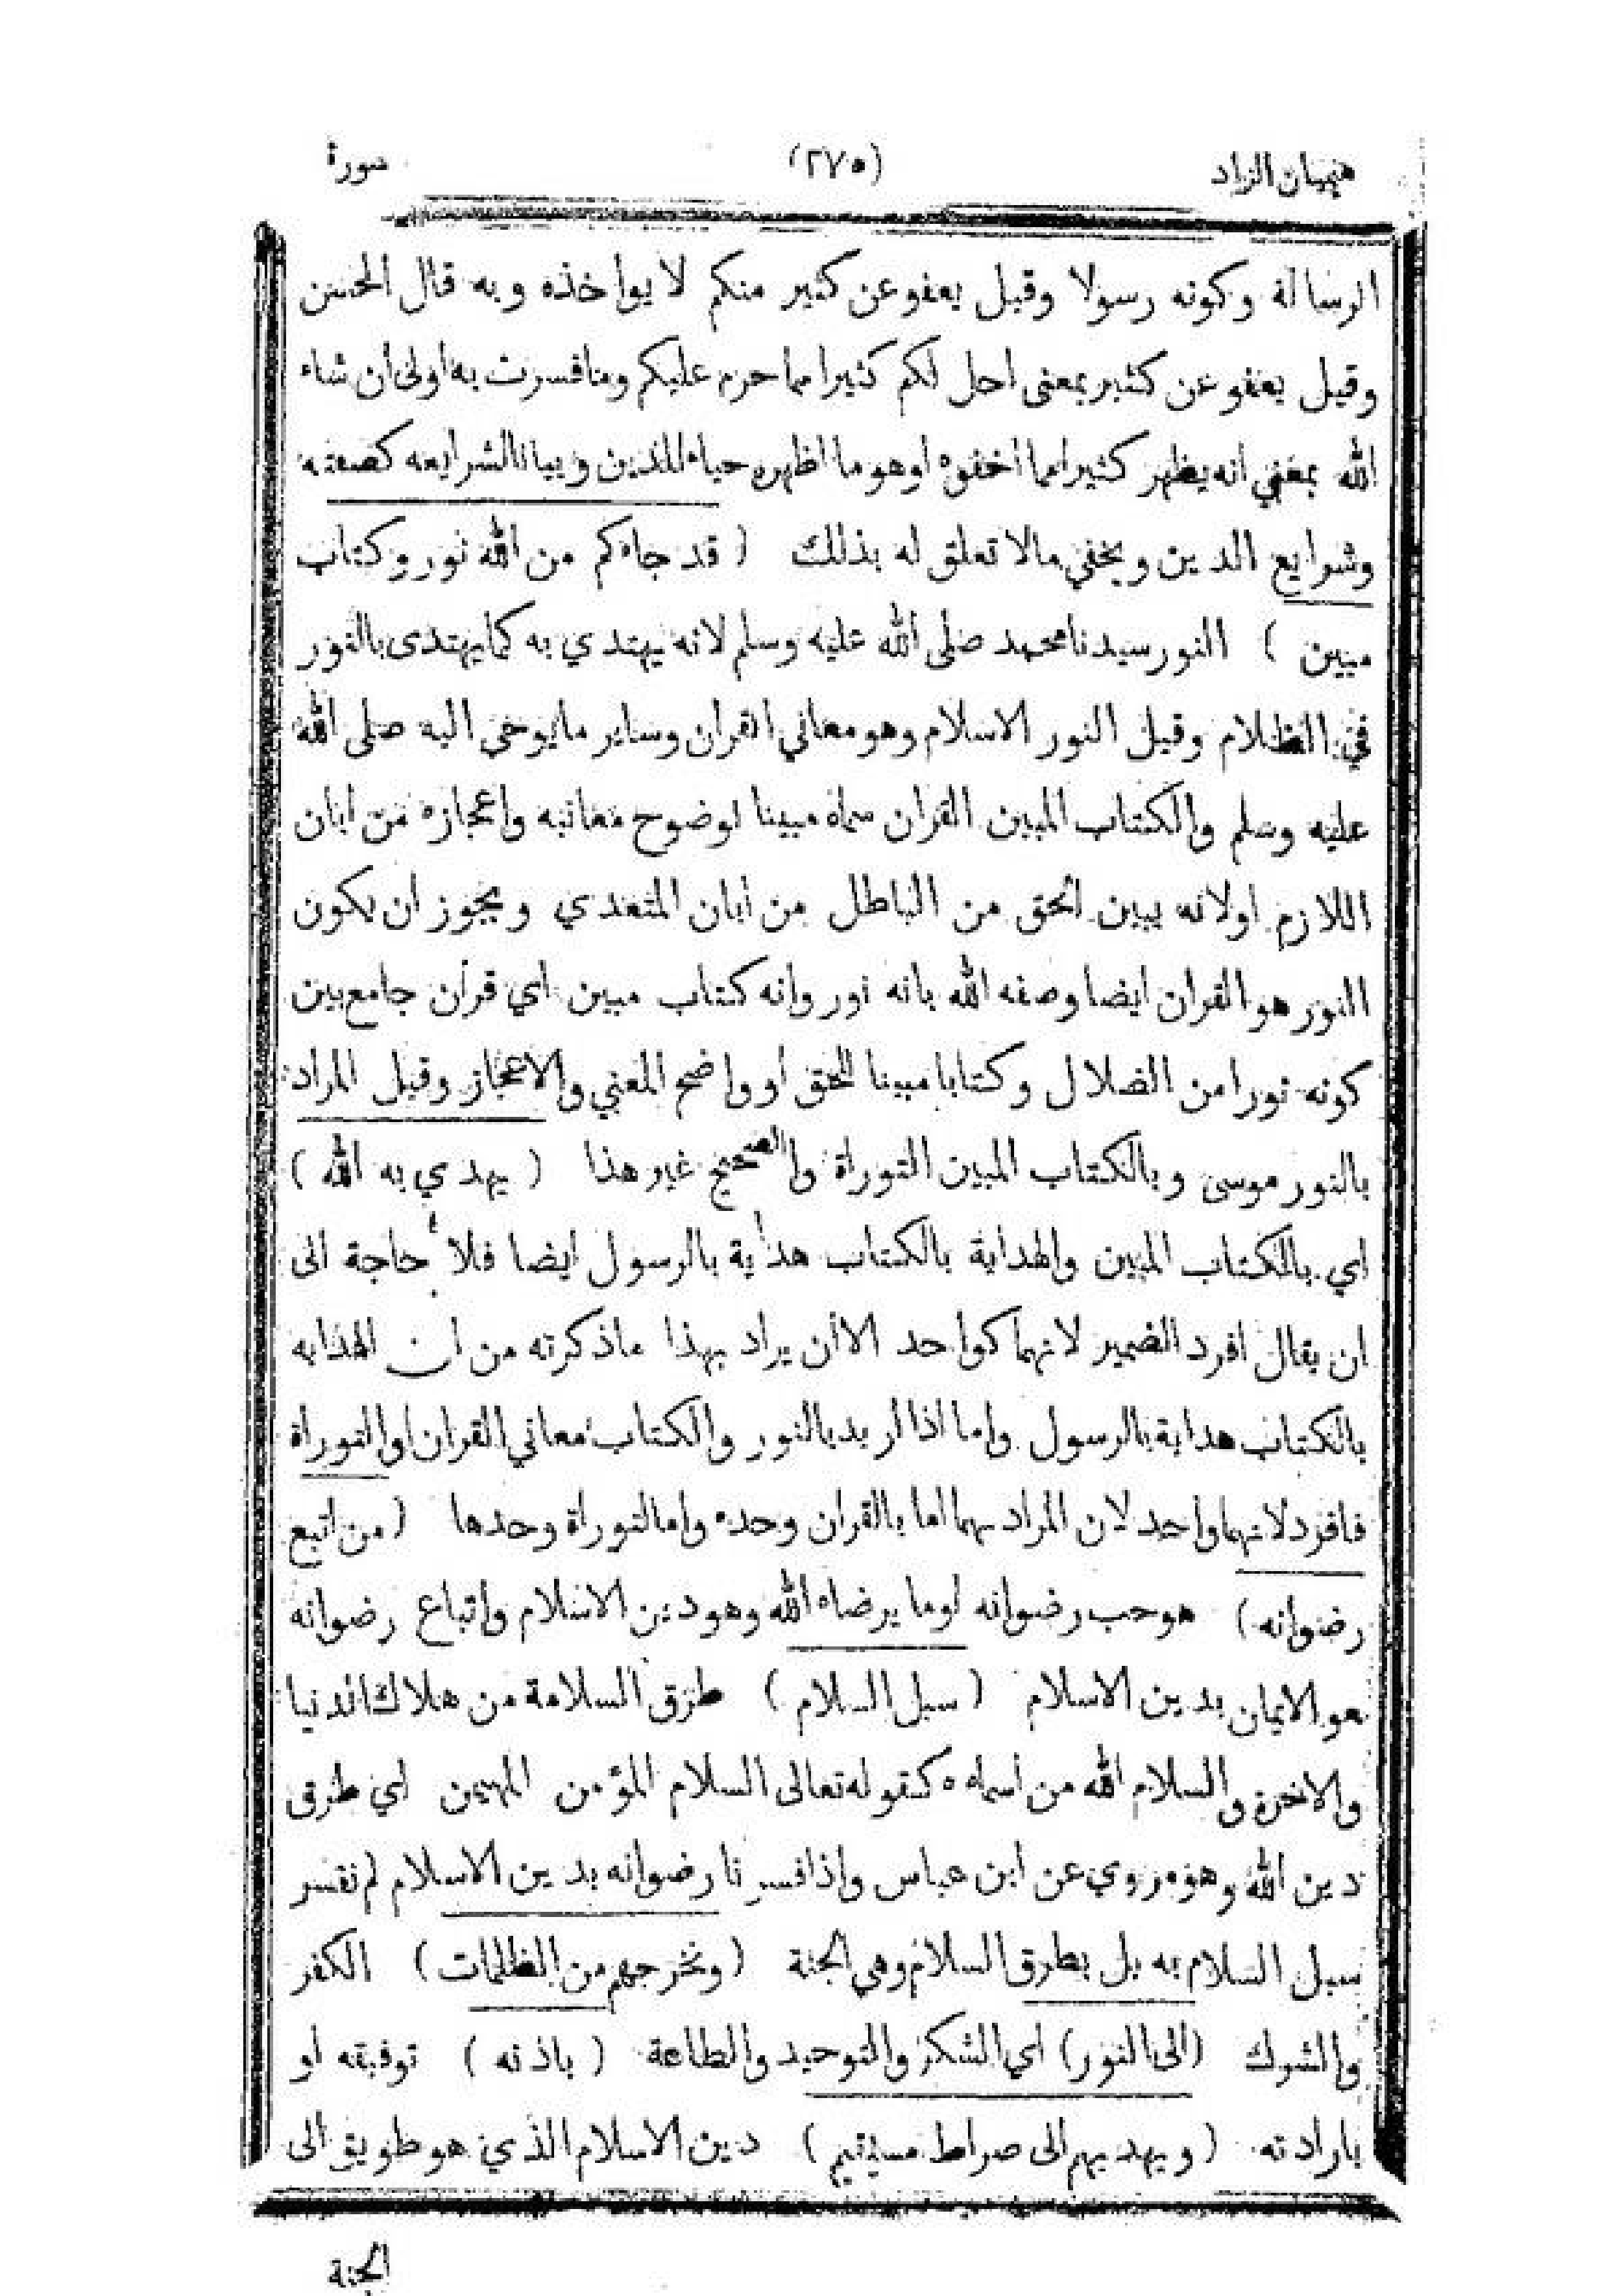 هميان الزاد (٢٧٥) سورة
الرسالة وكونه رسولا وقيل يعفو عن كثير منكم لا يواخذه وبه قال الحسن
وقيل يعفو عن كثير بمعنى احل لكم كثيرا مما حرم عليكم وما فسرت به أولى أن شاء
الله بمعنى انه يظهر كثيرا مما اخفوه او هو ما اظهره حياء للدين وبيانا لشرايعه كصفته
وشرايع الدين ويخفي مالا تعلق له بذلك ( قد جاءكم من الله نور وكتاب
مبين ) النور سيدنا محمد صلى الله عليه وسلم لانه يهتدي به كما يهتدى بالنور
في الظلام وقيل النور الاسلام وهو معاني القران وساير ما يوحى اليه صلى الله
عليه وسلم والكتاب المبين القران سماه مبينا لوضوح معانيه واعجازه من ابان
اللازم اولانه يبين الحق من الباطل من أبان المتعدي ويجوز أن يكون
النور هو القران ايضا وصفه الله بانه نور وانه كتاب مبين اي قرأن جامع بين
كونه نورا من الضلال وكتابا مبينا للحق أو واضح المعني والاعجاز وقيل المراد
بالنور موسى وبالكتاب المبين التوراة والصحيح غير هذا ( يهدي به الله )
اي بالكتاب المبين والهداية بالكتاب هداية بالرسول ايضا فلا حاجة الى
ان يقال افرد الضمير لانهما كواحد الا أن يراد بهذا ماذكرته من ان الهداية
بالكتاب هداية بالرسول واما اذا اريد بالنور والكتاب معاني القران او التوراة
فافرد لانهما واحد لان المراد بهما اما بالقران وحده واما التوراة وحدها ( من اتبع
رضوانه ) هو حب رضوانه او ما يرضاه الله وهو دين الاسلام واتباع رضوانه
هو الايمان بدين الاسلام ( سبل السلام ) طرق السلامة من هلاك الدنيا
والاخرة والسلام الله من أسماه كقوله تعالى السلام المؤمن المهيمن اي طرق
دين الله وهو مروي عن ابن عباس واذا فسرنا رضوانه بدين الاسلام لم نفسر
سبل السلام به بل بطرق السلام وهي الجنة ( ونخرجهم من الظلمات ) الكفر
والشرك ( الى النور ) اي الشكر والتوحيد والطاعة ( باذنه ) توفيقه أو
بارادته ( ويهديهم الى صراط مستقيم ) دين الاسلام الذي هو طريق الى
الجنة